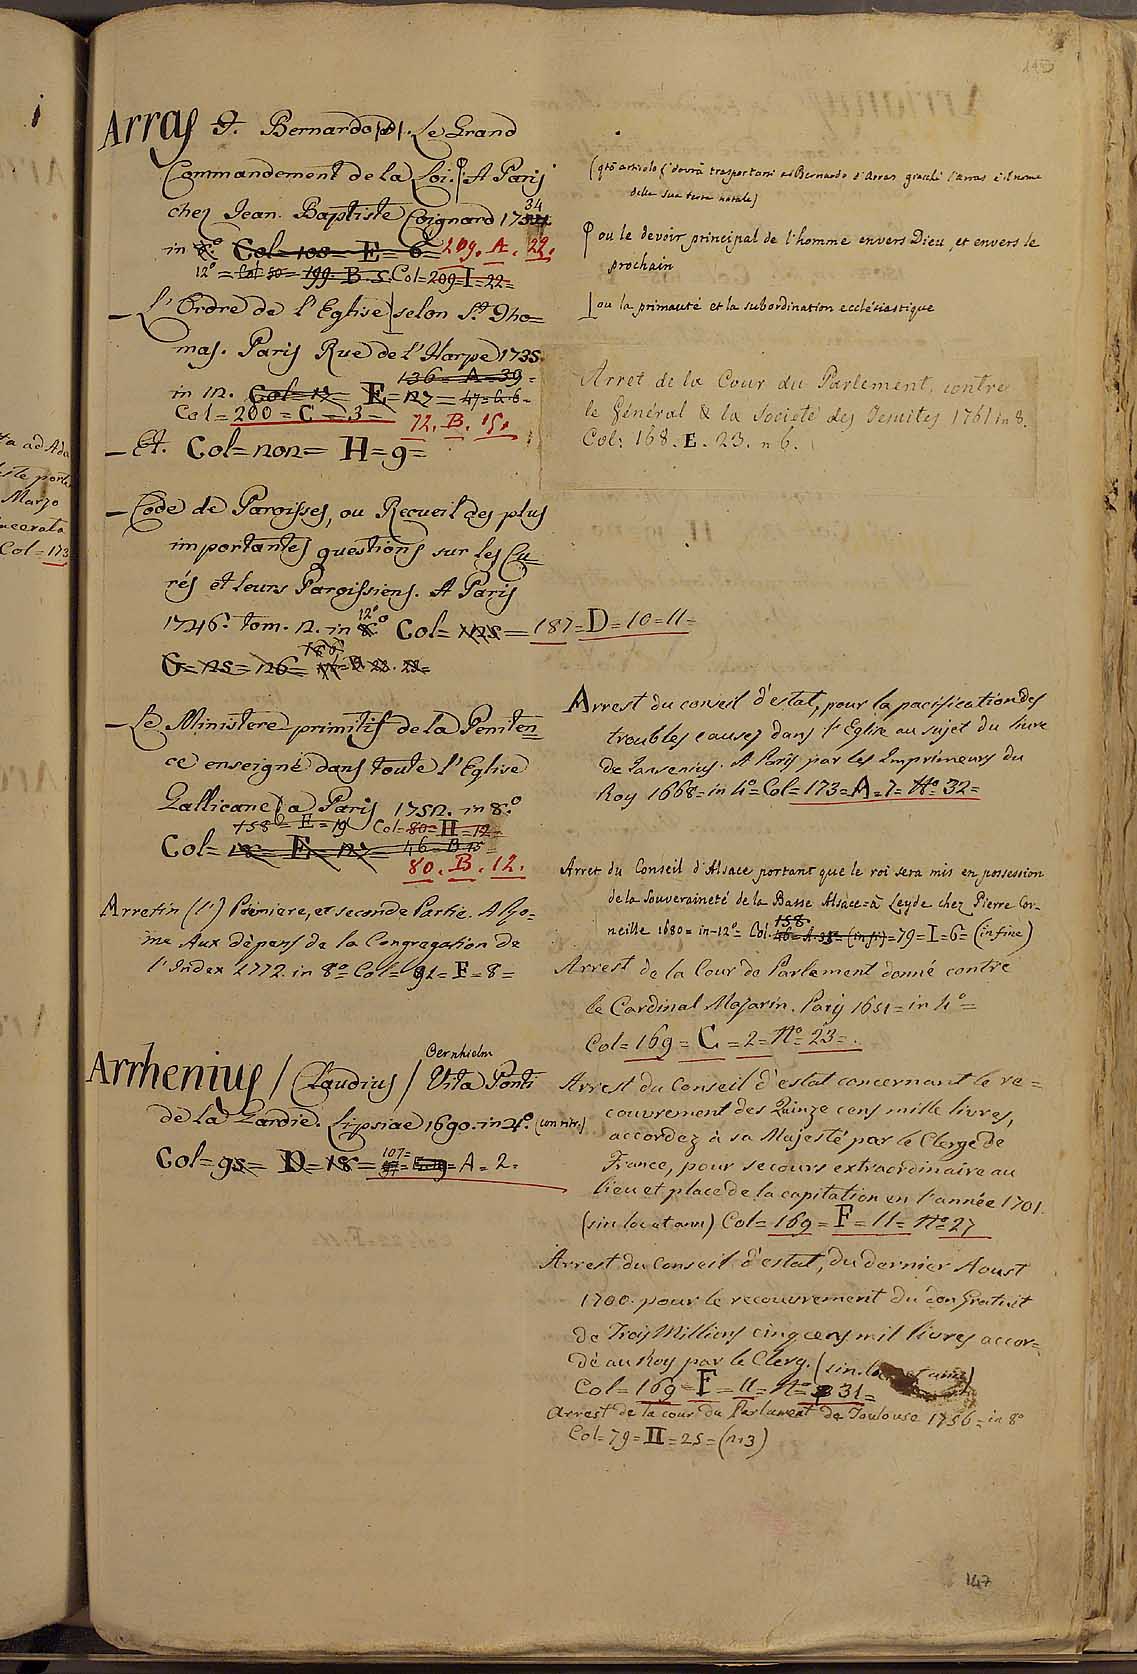 Arras d. Bernardo (D). Le Grand
Commandement de la Loi. A Paris
chez Jean Baptiste Coignard 1734
in 8.º Col=108=E=6=209. A. 22.
12º= Col 50= 199. B. 5. Col=209 I=22=
— L'Ordre de l'Eglise selon St. Tho=
mas. Paris Rue de l'Harpe 1735.
136=A=39=
in 12. Col=12= E=127=47=
Col=200=C=3= 72. B. 15.
— Et. Col=non= H=9=
— Code de Paroisses, ou Recueil des plus
importantes questions sur les Cu=
rés et leurs Paroissiens. A Paris
1746. tom. 2. in 12º Col=125=187=D=10=11=
G=125=126=
— Le Ministere primitif de la Peniten=
ce enseigné dans toute l'Eglise
Gallicane a Paris 1752. in 8.º
158=E=19 Col=80=H=12=
Col=18=E=127= 46=B 15=
80. B. 12.
Arretin (l') Premiere, et seconde Partie. A Ro=
me Aux dépens de la Congregation de
l'Index 1772. in 8º Col=91=F=8=
Arrhenius / Claudius / Oernhielm Vita Ponti
de la Gardie. Lipsiae 1690. in 4º. (con ritr.)
Col=93=D=18= 107= A=2.
(qto articolo si dovrà trasportare a Bernardo d'Arras giacchè l'Arras è il nome
della sua terra natale)
ou le devoir principal de l'homme envers Dieu, et envers le
prochain
ou la primauté et la subordination ecclésiastique
Arret de la Cour du Parlement, contre
le Général & la Societé des Jesuites 1761 in 8.
Col: 168. E. 23. n 6.
Arrest du conseil d'estat, pour la pacification des
troubles causez dans l'Eglise au sujet du livre
de Jansenius. A Paris par les Imprimeurs du
Roy 1668=in 4º=Col=173=A=7=Nº 32=
Arret du Conseil d'Alsace portant que le roi sera mis en possession
de la Souveraineté de la Basse Alsace=à Leyde chez Pierre Cor-
neille 1680=in-12º= Col. 158. =79=I=6=(in fine)
Arrest de la Cour de Parlement donné contre
le Cardinal Mazarin. Paris 1651=in 4º=
Col=169=C=2=Nº 23=.
Arrest du Conseil d'estat concernant le re=
couvrement des Quinze cens mille livres,
accordez à sa Majesté par le Clergé de
France, pour secours extraordinaire au
lieu et place de la capitation en l'année 1701.
(sin loc et ann) Col=169=F=11=Nº 27
Arrest du Conseil d'estat, du dernier Aoust
1700. pour le recouvrement du don Gratuit
de Trois Millions cinq cens mil livres accor=
dé au Roy par le Clerg. (sin. loc et ann)
Col=169=F=11=Nº 31=
Arrest de la cour du Parlement de Toulouse 1756=in 8º
Col=79=II=25=(n.3)
147